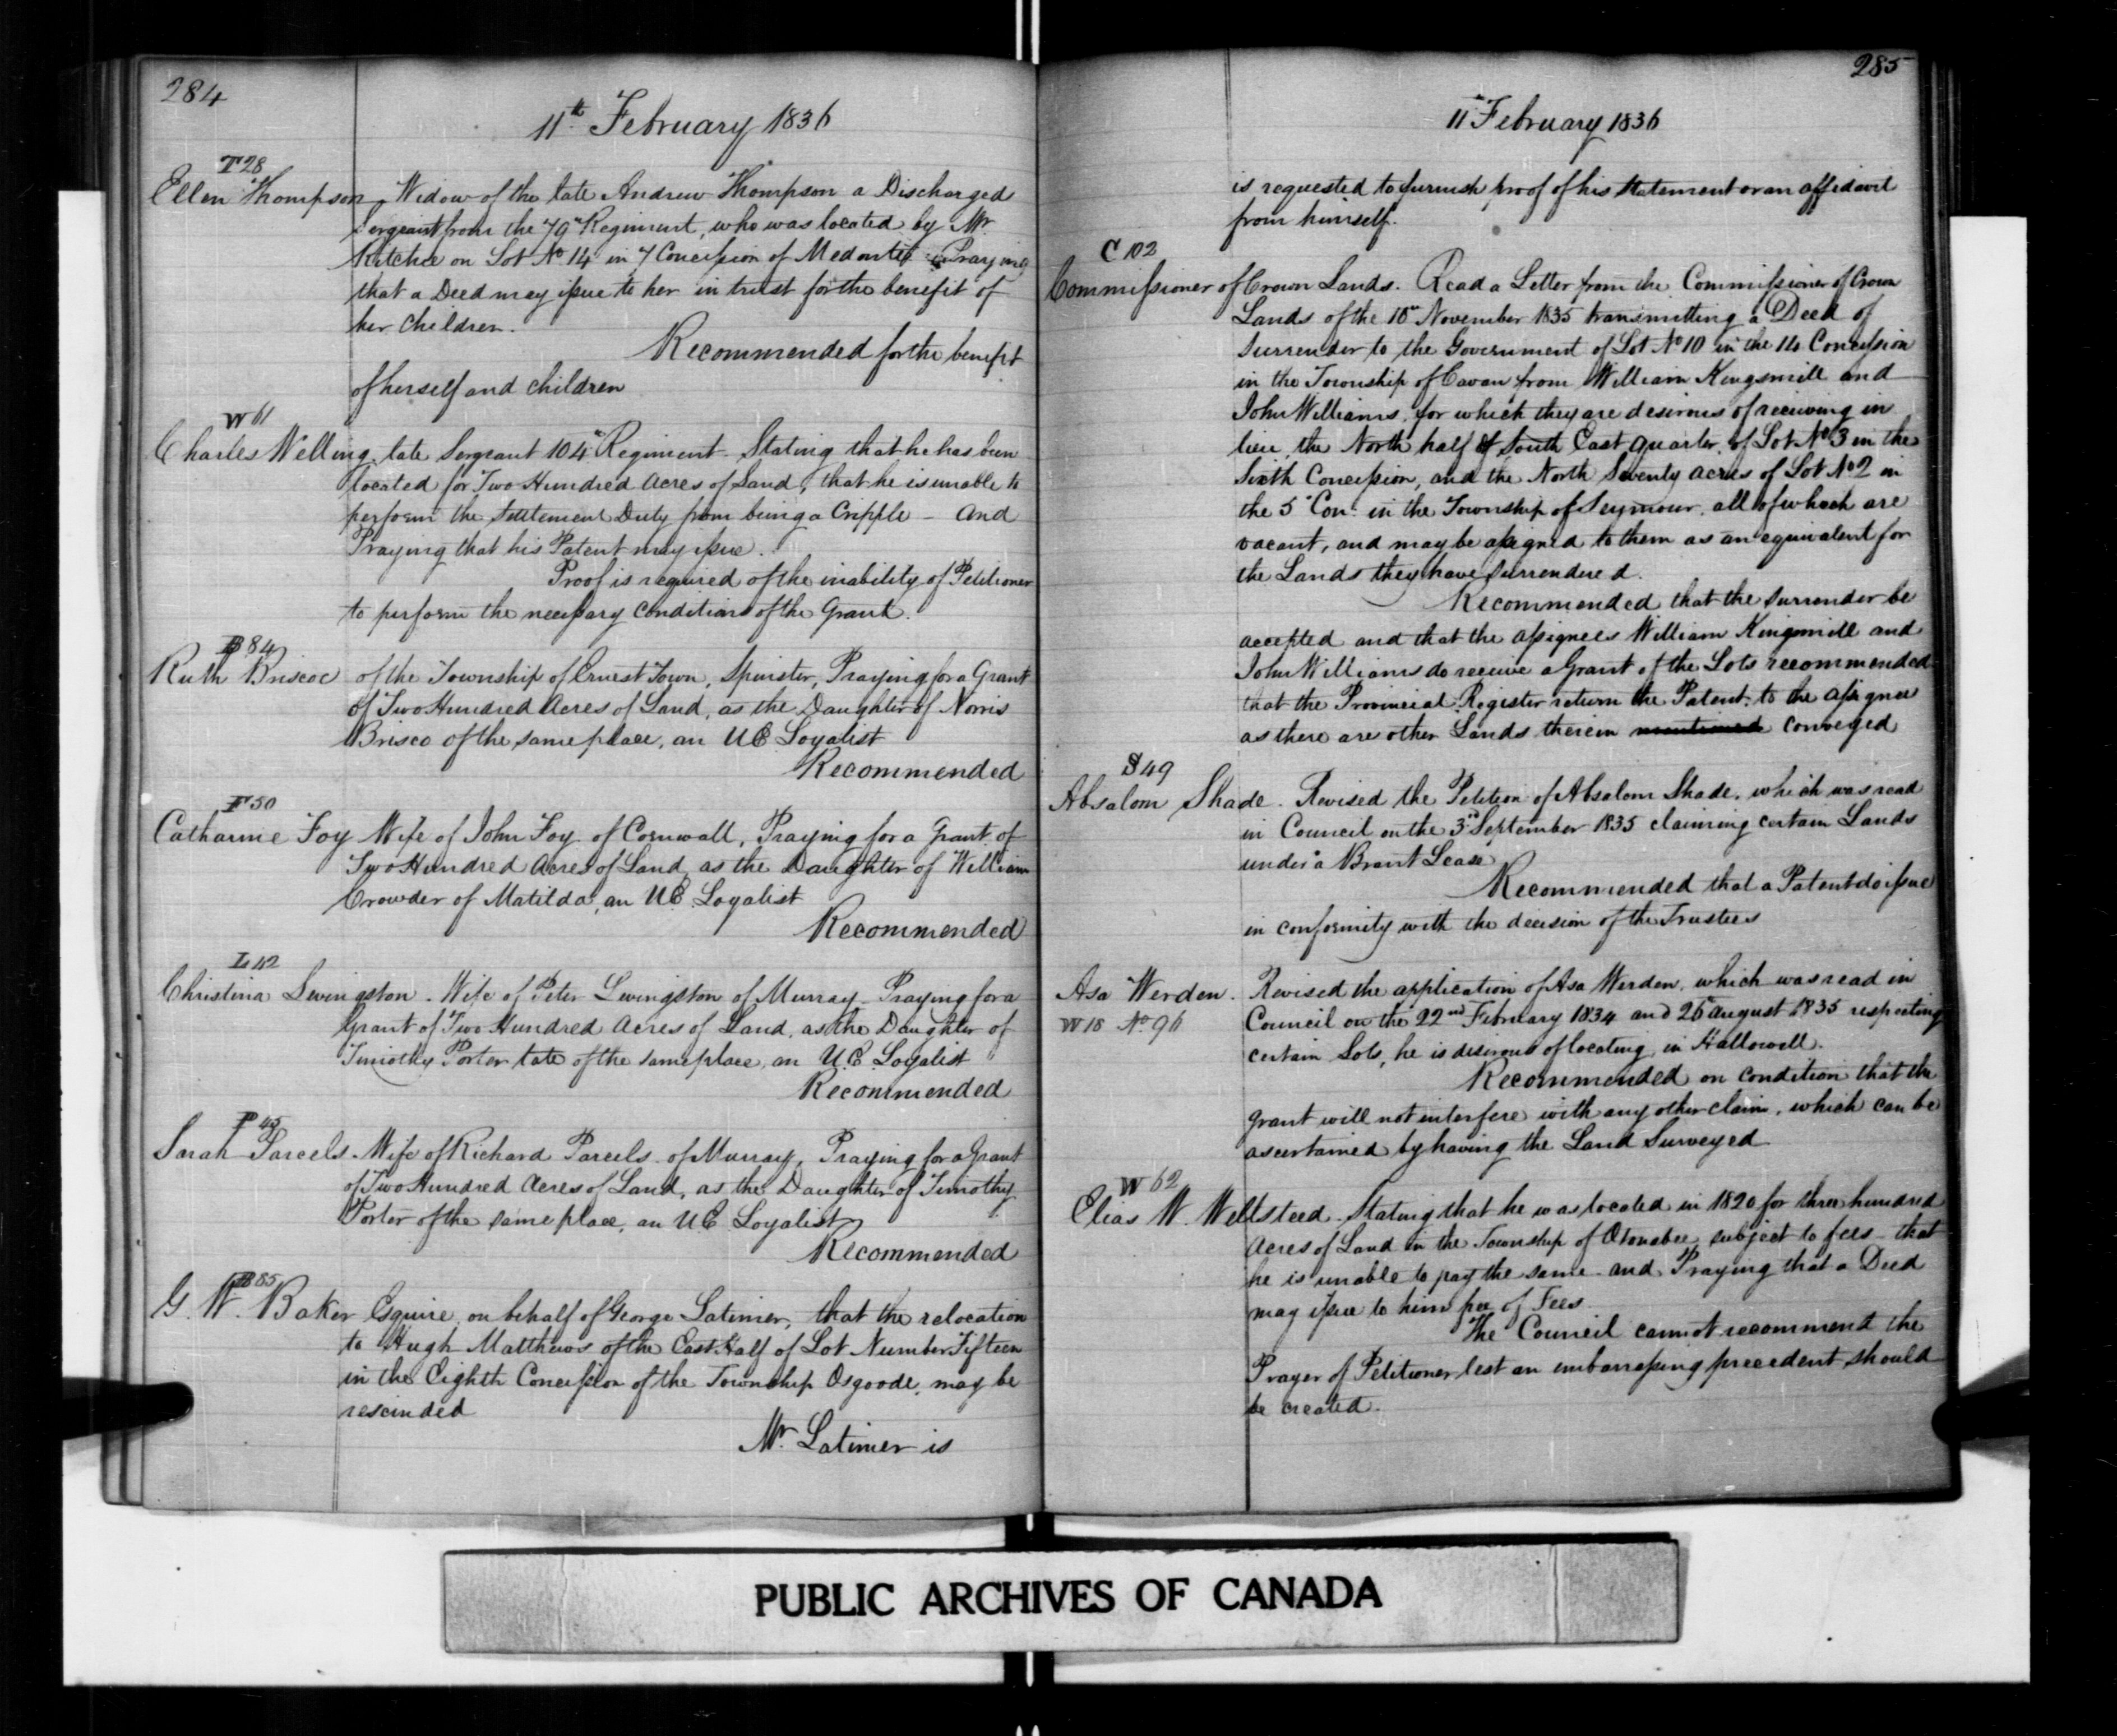 284
11th February 1836
T 28
Ellen Thompson, Widow of the late Andrew Thompson a Discharged
Sergeant from the 79th Regiment, who was located by Mr.
Ritchie on Lot No 14 in 7 Concession of Medonte Praying
that a Deed may issue to her in trust for the benefit of
her children.
Recommended for the benefit
of herself and children
W 61
Charles Welling, late Sergeant 104th Regiment. Stating that he has been
located for Two Hundred Acres of Land, that he is unable to
perform the Settlement Duty from being a Cripple – and
Praying that his Patent may issue.
Proof is required of the inability of Petitioner
to perform the necessary conditions of the Grant.
B 84
Ruth Briscoe of the Township of Ernest Town, Spinster, Praying for a Grant
of Two Hundred Acres of Land, as the Daughter of Norris
Brisco of the same place, an UE Loyalist
Recommended
F 50
Catharine Foy Wife of John Foy of Cornwall, Praying for a Grant of
Two Hundred Acres of Land, as the Daughter of William
Crowder of Matilda, an UE Loyalist
Recommended
L 42
Christina Livingston. Wife of Peter Livingston of Murray – Praying for a
Grant of Two Hundred Acres of Land, as the Daughter of
Timothy Porter late of the same place, an U.E. Loyalist
Recommended
P 45
Sarah Parcels. Wife of Richard Parcels of Murray, Praying for a Grant
of Two Hundred Acres of Land, as the Daughter of Timothy
Porter of the same place, an UE Loyalist
Recommended
B 85
G. W. Baker Esquire, on behalf of George Latimer, that the relocation
to Hugh Matthews of the East Half of Lot Number Fifteen
in the Eighth Concession of the Township Osgoode, may be
rescinded
Mr. Latimer is
285
11th February 1836
is requested to furnish proof of his Statement or an affidavit
from himself.
C 102
Commissioner of Crown Lands. Read a Letter from the Commissioner of Crown
Lands of the 10th November 1835 transmitting a Deed of
Surrender to the Government of Lot No 10 in the 14 Concession
in the Township of Cavan from William Kingsmill and
John Williams, for which they are desirous of receiving in
lieu, the North half of South East quarter of Lot No 3 in the
Sixth Concession, and the North Seventy acres of Lot No 2 in
the 5th Con: in the Township of Seymour, all of which are
vacant, and may be assigned to them as an equivalent for
the Lands they have surrendered.
Recommended that the surrender be
accepted and that the assignees William Kingsmill and
John Williams do receive a Grant of the Lots recommended
that the Provincial Register return the Patent to the Assignee
as there are other Lands therein mentioned conveyed
S 49
Absalom Shade. Revised the Petition of Absalom Shade, which was read
in Council on the 3rd September 1835 claiming certain Lands
under a Brant Lease
Recommended that a Patent do issue
in conformity with the decision of the Trustees
Asa Werden. Revised the application of Asa Werden, which was read in
W 18 No 96 Council on the 22nd February 1834 and 26th August 1835 respecting
certain Lots, he is desirous of locating, in Hallowell.
Recommended on condition that the
grant will not interfere with any other claim, which can be
ascertained by having the Land Surveyed
W 62
Elias W. Wellsteed. Stating that he was located in 1820 for three hundred
Acres of Land in the Township of Otonabee subject to fees – that
he is unable to pay the same and Praying that a Deed
may issue to him free of Fees.
The Council cannot recommend the
Prayer of Petitioner lest an embarrassing precedent should
be created.
PUBLIC ARCHIVES OF CANADA